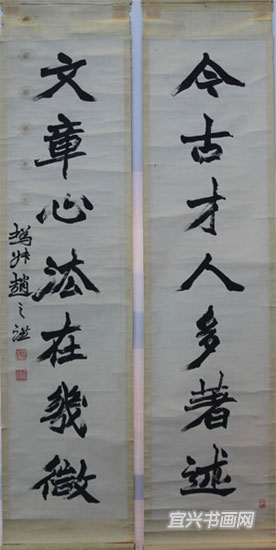 今古才人多著述
文章心法在幾微
趙之
宜兴书画网